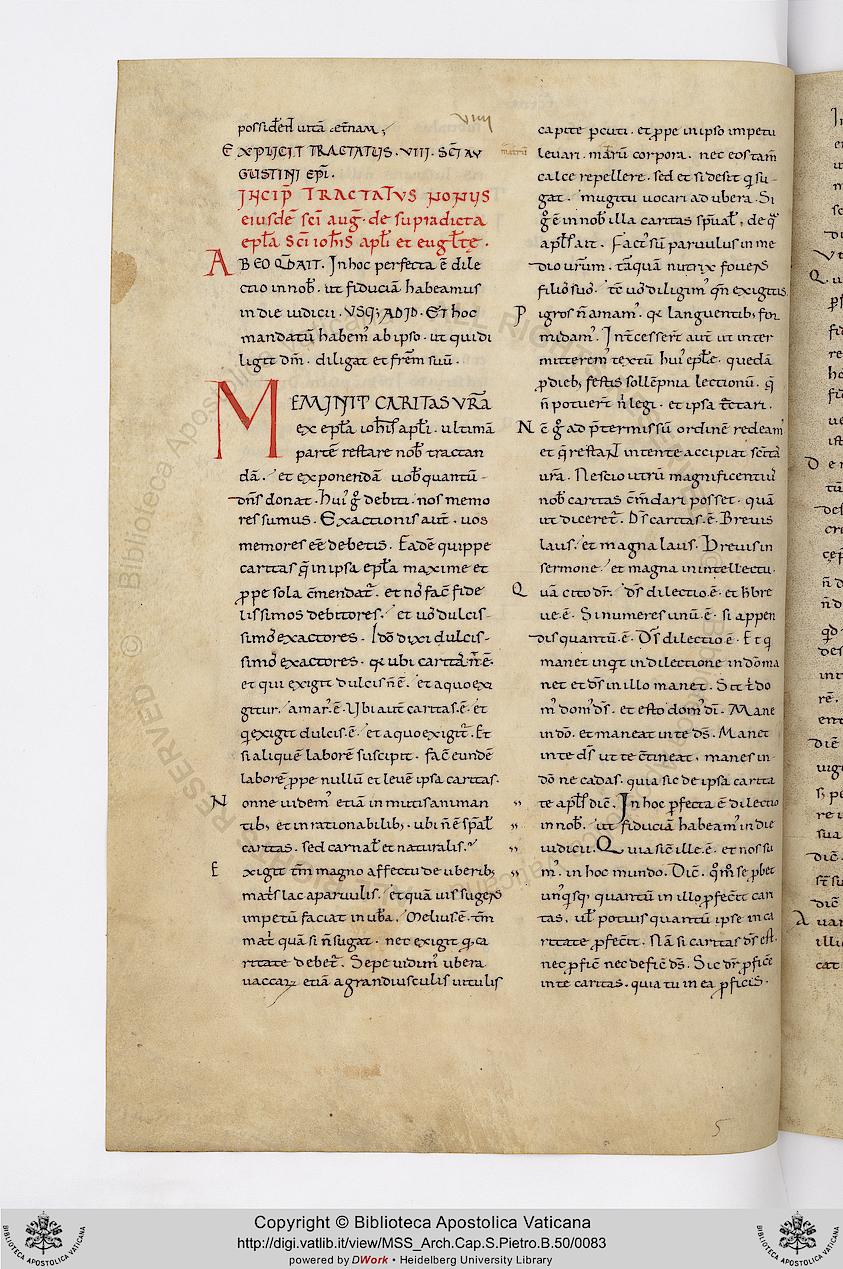 VIIII
possiden̄ uitā ęt̄nam;
EXPLICIT TRACTATUS · VIII · SC̄I AU
GUSTINI EPĪ.
INCIP̄ TRACTATVS NONUS
eiusdē sc̄i auḡ · de supradicta
epl̄a sc̄i ioh̄is apl̄i et eugl̄tę ·
AB EO QD̄ AIT . In hoc perfecta ē dile
ctio in nob̄ · ut fiduciā habeamus
in die iudicii · USQ; AD ID · Et hoc
mandatū habem' ab ipso · ut qui di
ligit dm̄ · diligat et frēm suū ·
MEMINIT CARITAS VRĀ
ex epl̄a ioh̄is apl̄i · ultimā
partē restare nob̄ tractan
dā · et exponendā uob̄ quantū
dn̄s donat · Hui' g° debiti · nos memo
res sumus · Exactionis aut̄ · uos
memores eē debetis · Eadē quippe
caritas q̄ in ipsa epl̄a maxime et
ꝓpe sola c̄mendat̄ · et nō' fac̄ fide
lissimos debitores · et uō' dulcis-
simō' exactores · Idō dixi dulcis-
simō' exactores · q̄ ubi caritas ñ ē ·
et qui exigit dulcis ñ ē · et a quo exi
gitur · amar' ē · Ubi aut̄ caritas ē · et
q̄ exigit dulcis ē · et a quo exigit̄ · Et
si aliquē laborē suscipit · fac̄ eundē
laborē ꝓpe nullū et leuē ipsa caritas ·
Nonne uidem' etiā in mutis animan
tib; et in rationabilib; · ubi ñ ē spāl̄
caritas · sed carnal̄ et naturalis ·
Exigit tm̄ magno affectu de uberib;
mat̄s lac a paruulis · et quā uis sugens
impetū faciat in ub̄a · Melius ē · tm̄
mat̄ quā si ñ sugat · nec exigit q̄ ca
ritate debet̄ · Sepe uidim' ubera
uaccaꝝ etiā a grandiusculis uitulis
capite ꝑcuti · et ꝓpe in ipso impetu
leuari · matrū
mar̄ū corpora · nec eos tam̄
calce repellere · sed et si desit q̄ su-
gat · mugitu uocari ad ubera · Si
g° ē in nob̄ illa caritas spūal̄ · de q̄
apl̄s ait · Fact' sū paruulus in me
dio urūm · tāquā nutrix fouens
filiō' suō' · tē uō' diligim' qn̄ exigitis
Pigros ñ amam' · q̄ languentib; for
midam' · Int̄cesser̄t aut̄ ut inter
mitterem' textū hui' epl̄e · quedā
ꝓ dieb; festis sollēpnia lectionū · q̄
ñ potuer̄t ñ legi · et ipsa t̄ctari ·
Nē g° ad p̄termissū ordinē redeam'
et q̄ restan̄t intente accipiat sc̄tā
urā · Nescio utrū magnificentiu'
nob̄ caritas c̄m̄dari posset · quā
ut diceret̄ · Ds̄ caritas · ē · Breuis
laus · et magna laus · Breuis in
sermone · et magna in intellectu ·
Quā cito dr̄ · ds̄ dilectio · ē · et h̄ bre
ue · ē · Si numeres unū · ē · si appen
dis quantū · ē · Ds̄ dilectio ē · Et q̄
manet inqt̄ in dilectione in dō ma
net et ds̄ in illo manet · Sit t̄ do
m' dom' ds̄ · et esto dom' dī · Mane
in dō · et maneat in te ds̄ · Manet
in te ds̄ ut te c̄tineat · manes in
dō ne cadas · quia sic de ipsa carita
te apl̄s dic̄ · In hoc ꝑfecta ē dilectio
in nob̄ · ut fiduciā habeam' in die
iudicii · Quia sic̄ ille · ē · et nos su
m' · in hoc mundo · Dic̄ · qm̄ se ꝓbet
un'qsq; quantū in illo ꝓfecit cari
tas · ul̄ potius quantū ipse in ca
ritate ꝓfec̄it · Nā si caritas ds̄ est ·
nec ꝓfic̄ nec defic̄ ds̄ · Sic dr̄ ꝓfice
in te caritas · quia tu in ea ꝓficis ·
5
Copyright © Biblioteca Apostolica Vaticana
http://digi.vatlib.it/view/MSS_Arch.Cap.S.Pietro.B.50/0083
powered by DWork • Heidelberg University Library